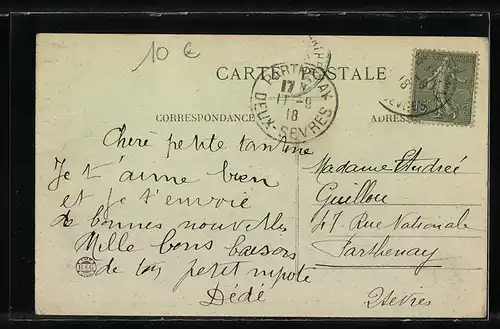 10 €
CARTE POSTALE
PARTHENAY
17
11-9
18
DEUX-SÈVRES
15
CORRESPONDANCE
ADRESSE
Chère petite tantine
Je t'aime bien
et je t'envoie
de bonnes nouvelles
Mille bons baisers
de ton petit
Dédé
B&G
Madame Andrée
Guillou
47 Rue Nationale
Parthenay
2 Sèvres